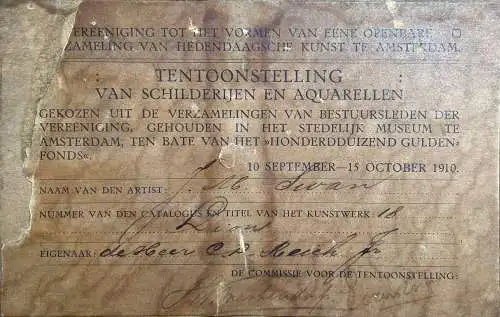 VEREENIGING TOT HET VORMEN VAN EENE OPENBARE
VERZAMELING VAN HEDENDAAGSCHE KUNST TE AMSTERDAM.
TENTOONSTELLING
VAN SCHILDERIJEN EN AQUARELLEN
GEKOZEN UIT DE VERZAMELINGEN VAN BESTUURSLEDEN DER
VEREENIGING, GEHOUDEN IN HET STEDELIJK MUSEUM TE
AMSTERDAM, TEN BATE VAN HET »HONDERDDUIZEND GULDEN-
FONDS«.
10 SEPTEMBER—15 OCTOBER 1910.
NAAM VAN DEN ARTIST: J. M. Swan
NUMMER VAN DEN CATALOGUS EN TITEL VAN HET KUNSTWERK: 18
EIGENAAR: de Heer C. Jr
DE COMMISSIE VOOR DE TENTOONSTELLING: